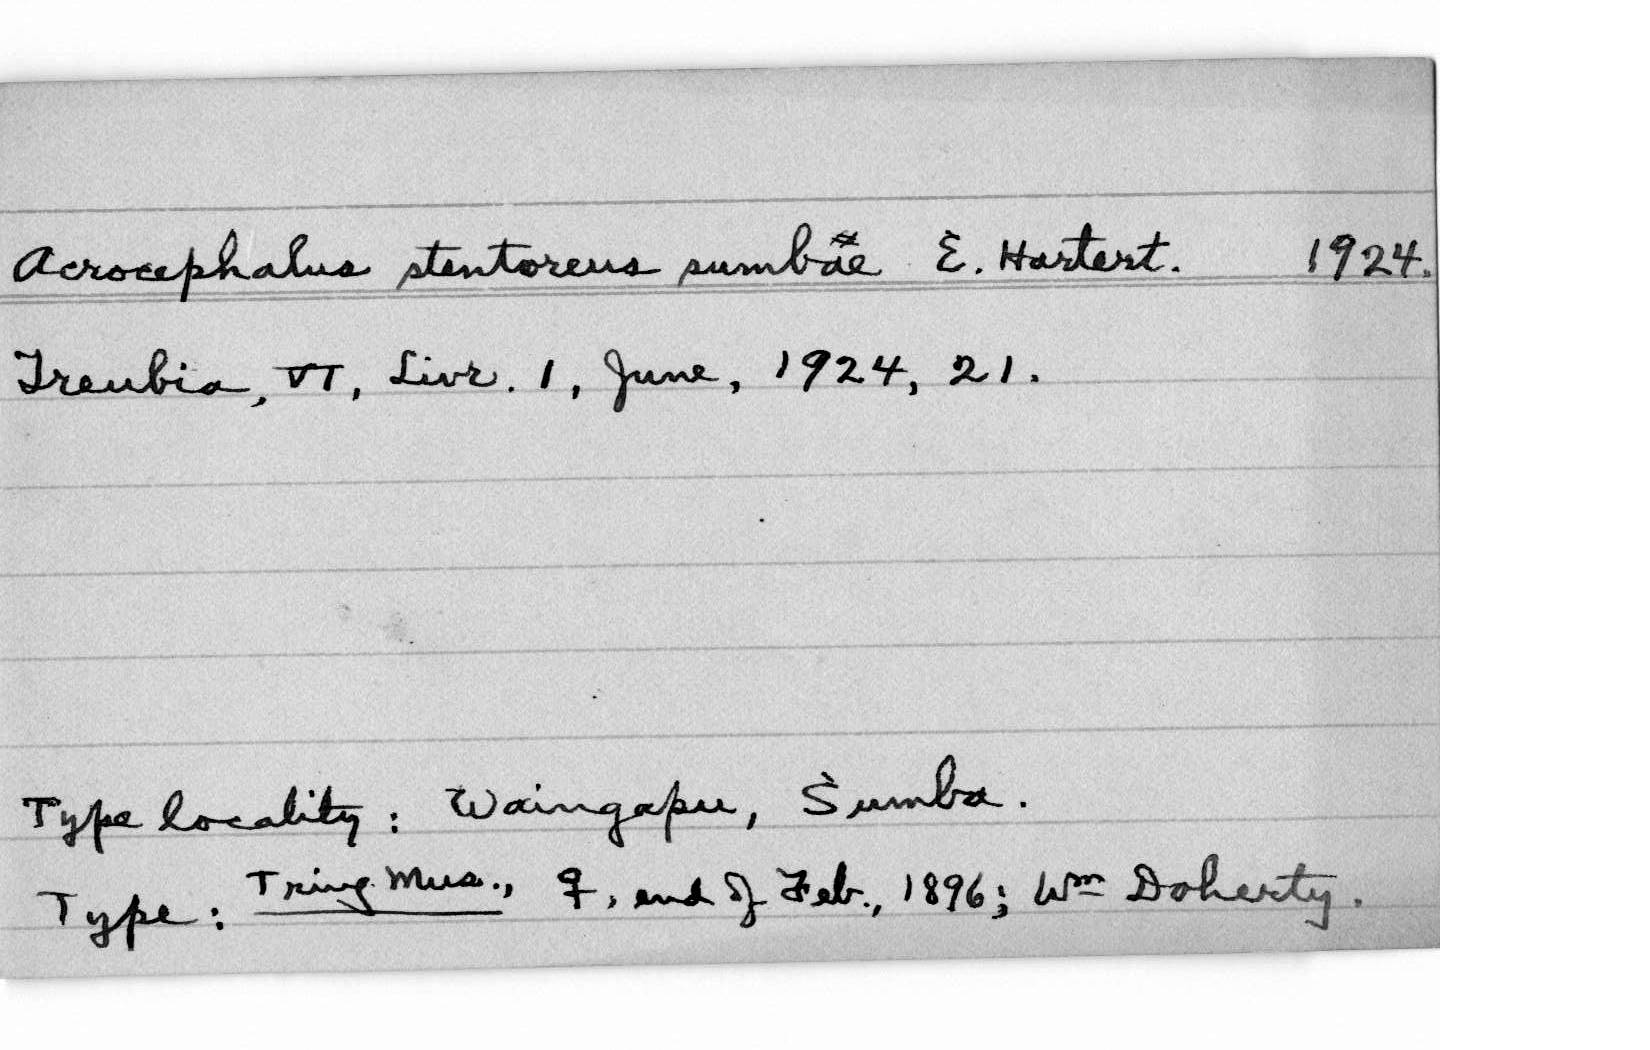 Acrocephalus stentoreus sumbae E. Hartert. 1924.
Treubia, VI, Livr. 1, June, 1924, 21.
Type locality: Waingapu, Sumba.
Type: Tring Mus., ♀, end of Feb., 1896; Wm Doherty.